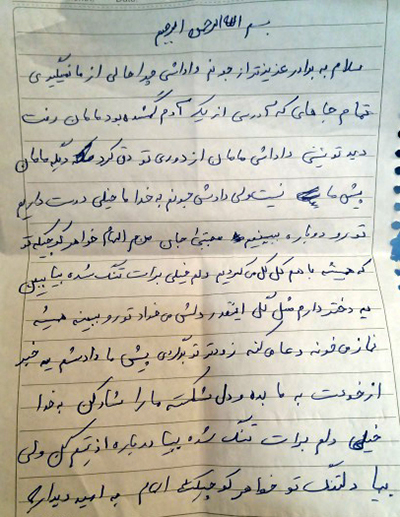 بسم الله الرحمن الرحیم
سلام به برادر عزیزتر از جونم داداشی چرا حالی از ما نمیگیری
تمام جا های که آدرسی از یک آدم گمشده بود مامان رفت
دید تو نیستی داداشی مامان از دوری تو دق کرد دیگه مامان
پیش ما نیست ولی داداشی جونم به خدا ما خیلی دوست داریم
تو رو دوباره ببینیم مجتبی جان منم الهام خواهر کوچیکه تو
که همیشه با هم کل کل می کردیم دلم خیلی برات تنگ شده بیا ببین
یه دختر دارم مثل گل اینقدر دلش می خواد تو رو ببینه همیشه
نماز می خونه و دعا می کنه زودتر تو بیای پیش ما داداشم یه خبر
از خودت به ما بده و دل شکسته ما را شاد کن به خدا
خیلی دلم برات تنگ شده بیا دوباره اذیتم کن ولی
بیا دلتنگ تو خواهر کوچیکت الهام به امید دیدار